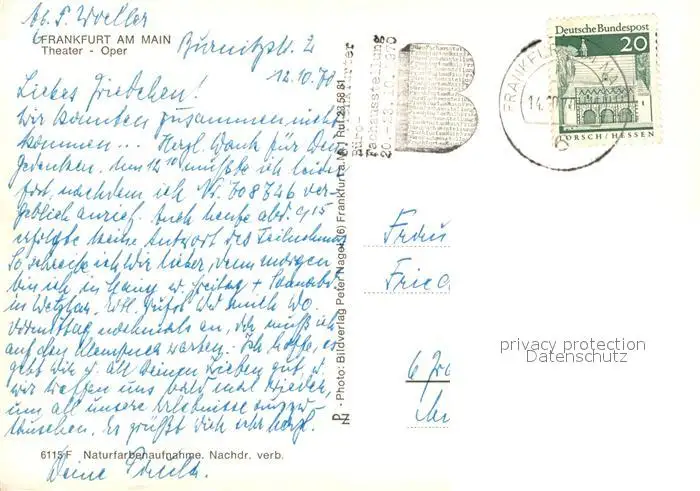 FRANKFURT AM MAIN
Theater - Oper
Burnitzstr. 2
12.10.70
Liebes Friedchen!
Wir konnten zusammen nicht
kommen... Herzl. Dank für Dein
Gedenken. Um 12¹⁰ mußte ich leider
fort, nachdem ich Nr. 708746 ver-
geblich anrief. Auch heute abd. 9¹⁵
erfolgte keine Antwort des Teilnehmers
So schreibe ich Dir lieber, denn morgen
bin ich in Hanau u. Freitag + Sonnabd.
in Wetzlar. Vll. rufst Du mich Do.
vormittag nochmals an, da muß ich
auf den Klempner warten. Ich hoffe, es
geht Dir u. all Deinen Lieben gut, u.
wir treffen uns bald mal wieder,
um all unsere Erlebnisse auszu-
tauschen. Es grüßt Dich sehr herzl.
Deine
6115 F Naturfarbenaufnahme. Nachdr. verb.
P - Photo: Bildverlag Peter Nagel (6) Frankfurt a. M. 1 Ruf 23 58 81
N
Büro-
Fachausstellung
Deutsche Bundespost
20
LORSCH / HESSEN
FRANKFURT AM MAIN
Frau
6
privacy protection
Datenschutz